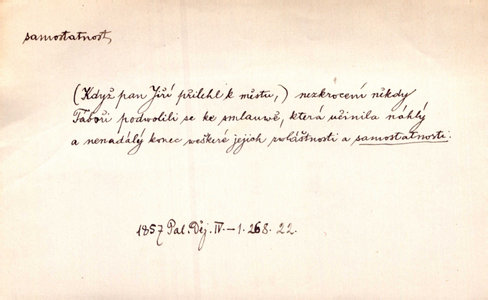 samostatnost
(Když pan Jiří přilehl k městu,) nezkrocení někdy
Táboři podwolili se ke smlauwě, která učinila náhlý
a nenadálý konec weškeré jejich zwláštnosti a samostatnosti.
1857 Pal. Děj. IV-1. 268. 22.